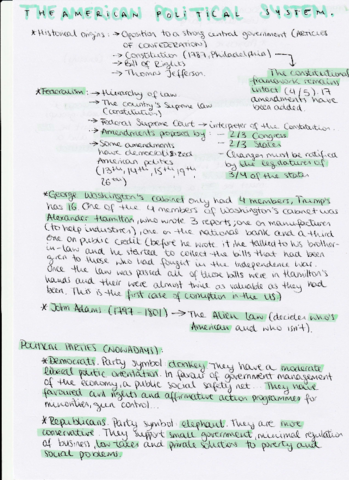 THE AMERICAN POLITICAL SYSTEM.
* Historical origins: → Oposition to a strong central government (ARTICLES
OF CONFEDERATION)
→ Constitution (1787, Philadelphia)
→ Bill of Rights
→ Thomas Jefferson.
The constitutional
framework remains
intact (4/5). 17
amendments have
been added.
* Federalism: → Hierarchy of law
→ The country's Supreme law
(Constitution)
→ Federal Supreme Court → interpreter of the Constitution.
→ Amendments proposes by: — 2/3 Congress
— 2/3 States
→ Some amendments
have democratized
American politics
(13th, 14th, 15th, 19th,
26th)
— Changes must be ratified
by the legislatures of
3/4 of the state
* George Washington's cabinet only had 4 members, Trump's
has 16. One of the 4 members of Washington's cabinet was
Alexander Hamilton, who wrote 3 reports, one on manufactures
(to help industries), one on the national bank and a third
one on public credit (before he wrote it he talked to his brother-
in-law and he started to collect the bills that had been
given to those who had fought in the independence war.
Once the law was passed all of those bills were in Hamilton's
hands and their were almost twice as valuable as they had
been. This is the first case of corruption in the US.)
* John Adams (1797-1801) → The Alien Law (decides who's
American and who isn't).
POLITICAL PARTIES (NOWADAYS):
* Democrats. Party symbol donkey. They have a moderate
liberal politic orientation. In favour of government management
of the economy, a public social safety net... They have
favoured civil rights and affirmative action programmes for
minorities, gun control...
* Republicans. Party symbol elephant. They are most
conservative. They support small government, minimal regulation
of business, low taxes and private solutions to poverty and
social problems.